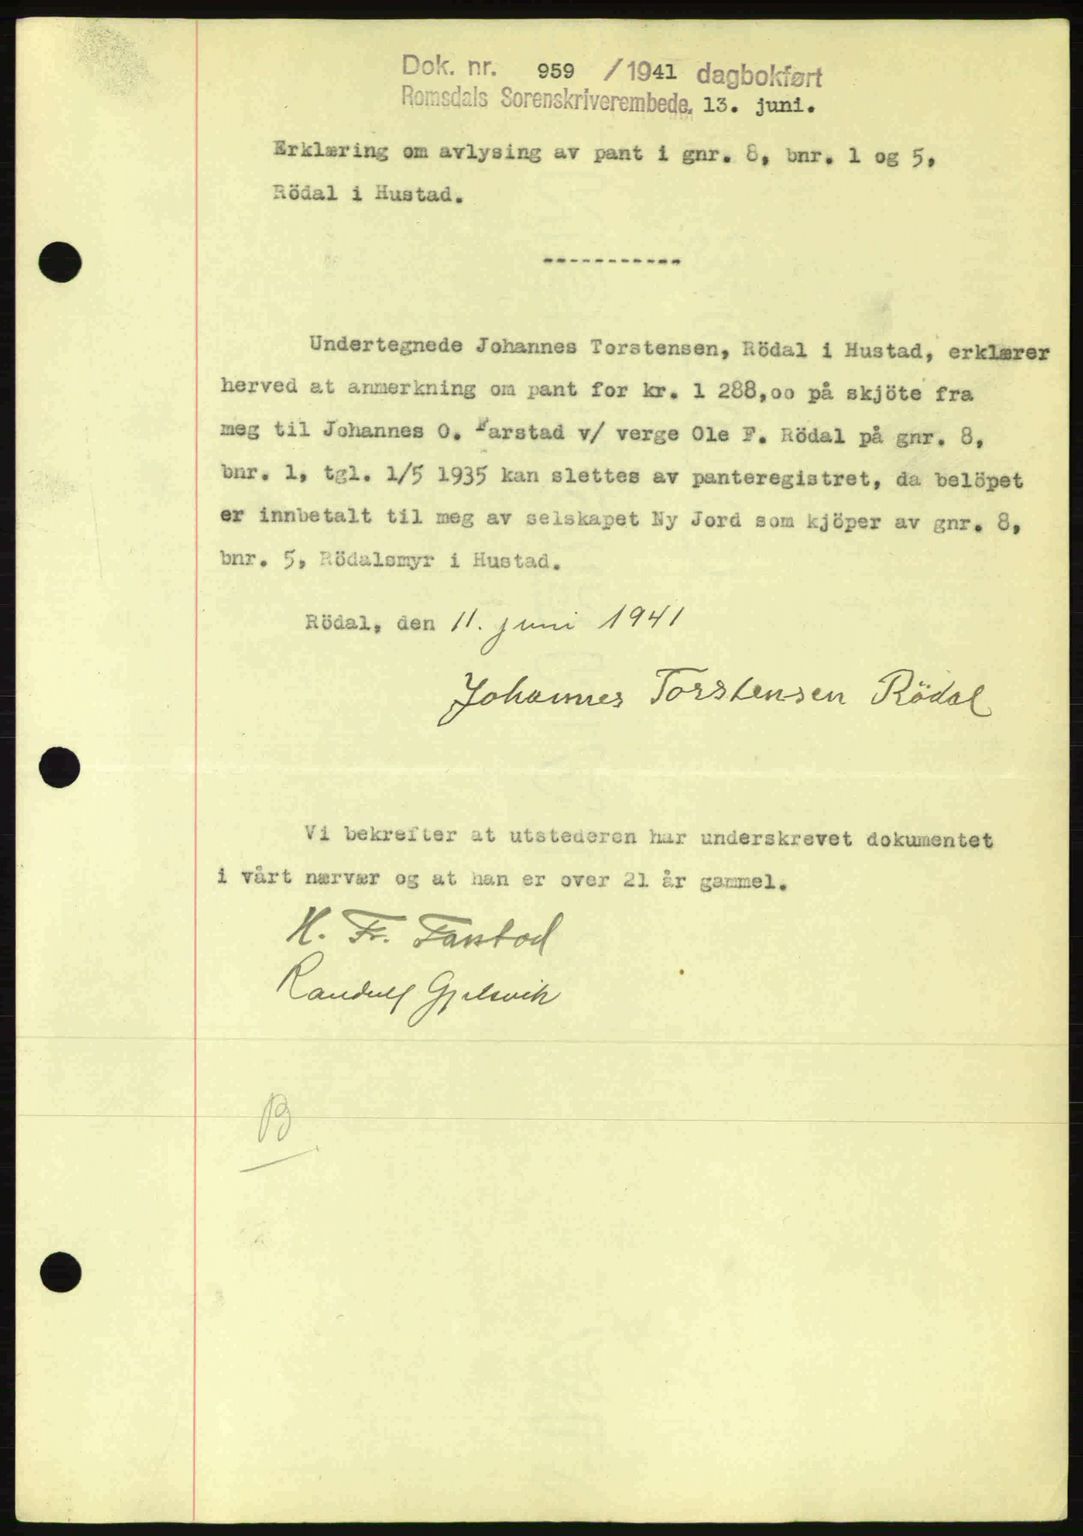 Dok. nr. 959 /1941 dagbokført
Romsdals Sorenskriverembede. 13. juni.
Erklæring om avlysing av pant i gnr. 8, bnr. 1 og 5,
Rödal i Hustad.
-----------
Undertegnede Johannes Torstensen, Rödal i Hustad, erklærer
herved at anmerkning om pant for kr. 1 288,oo på skjöte fra
meg til Johannes O. Farstad v/ verge Ole F. Rödal på gnr. 8,
bnr. 1, tgl. 1/5 1935 kan slettes av panteregistret, da belöpet
er innbetalt til meg av selskapet Ny Jord som kjöper av gnr. 8,
bnr. 5, Rödalsmyr i Hustad.
Rödal, den 11. juni 1941
Johannes Torstensen Rödal
Vi bekrefter at utstederen har underskrevet dokumentet
i vårt nærvær og at han er over 21 år gammel.
H. Fr. Farstad
Randulf Gjelsvik
B